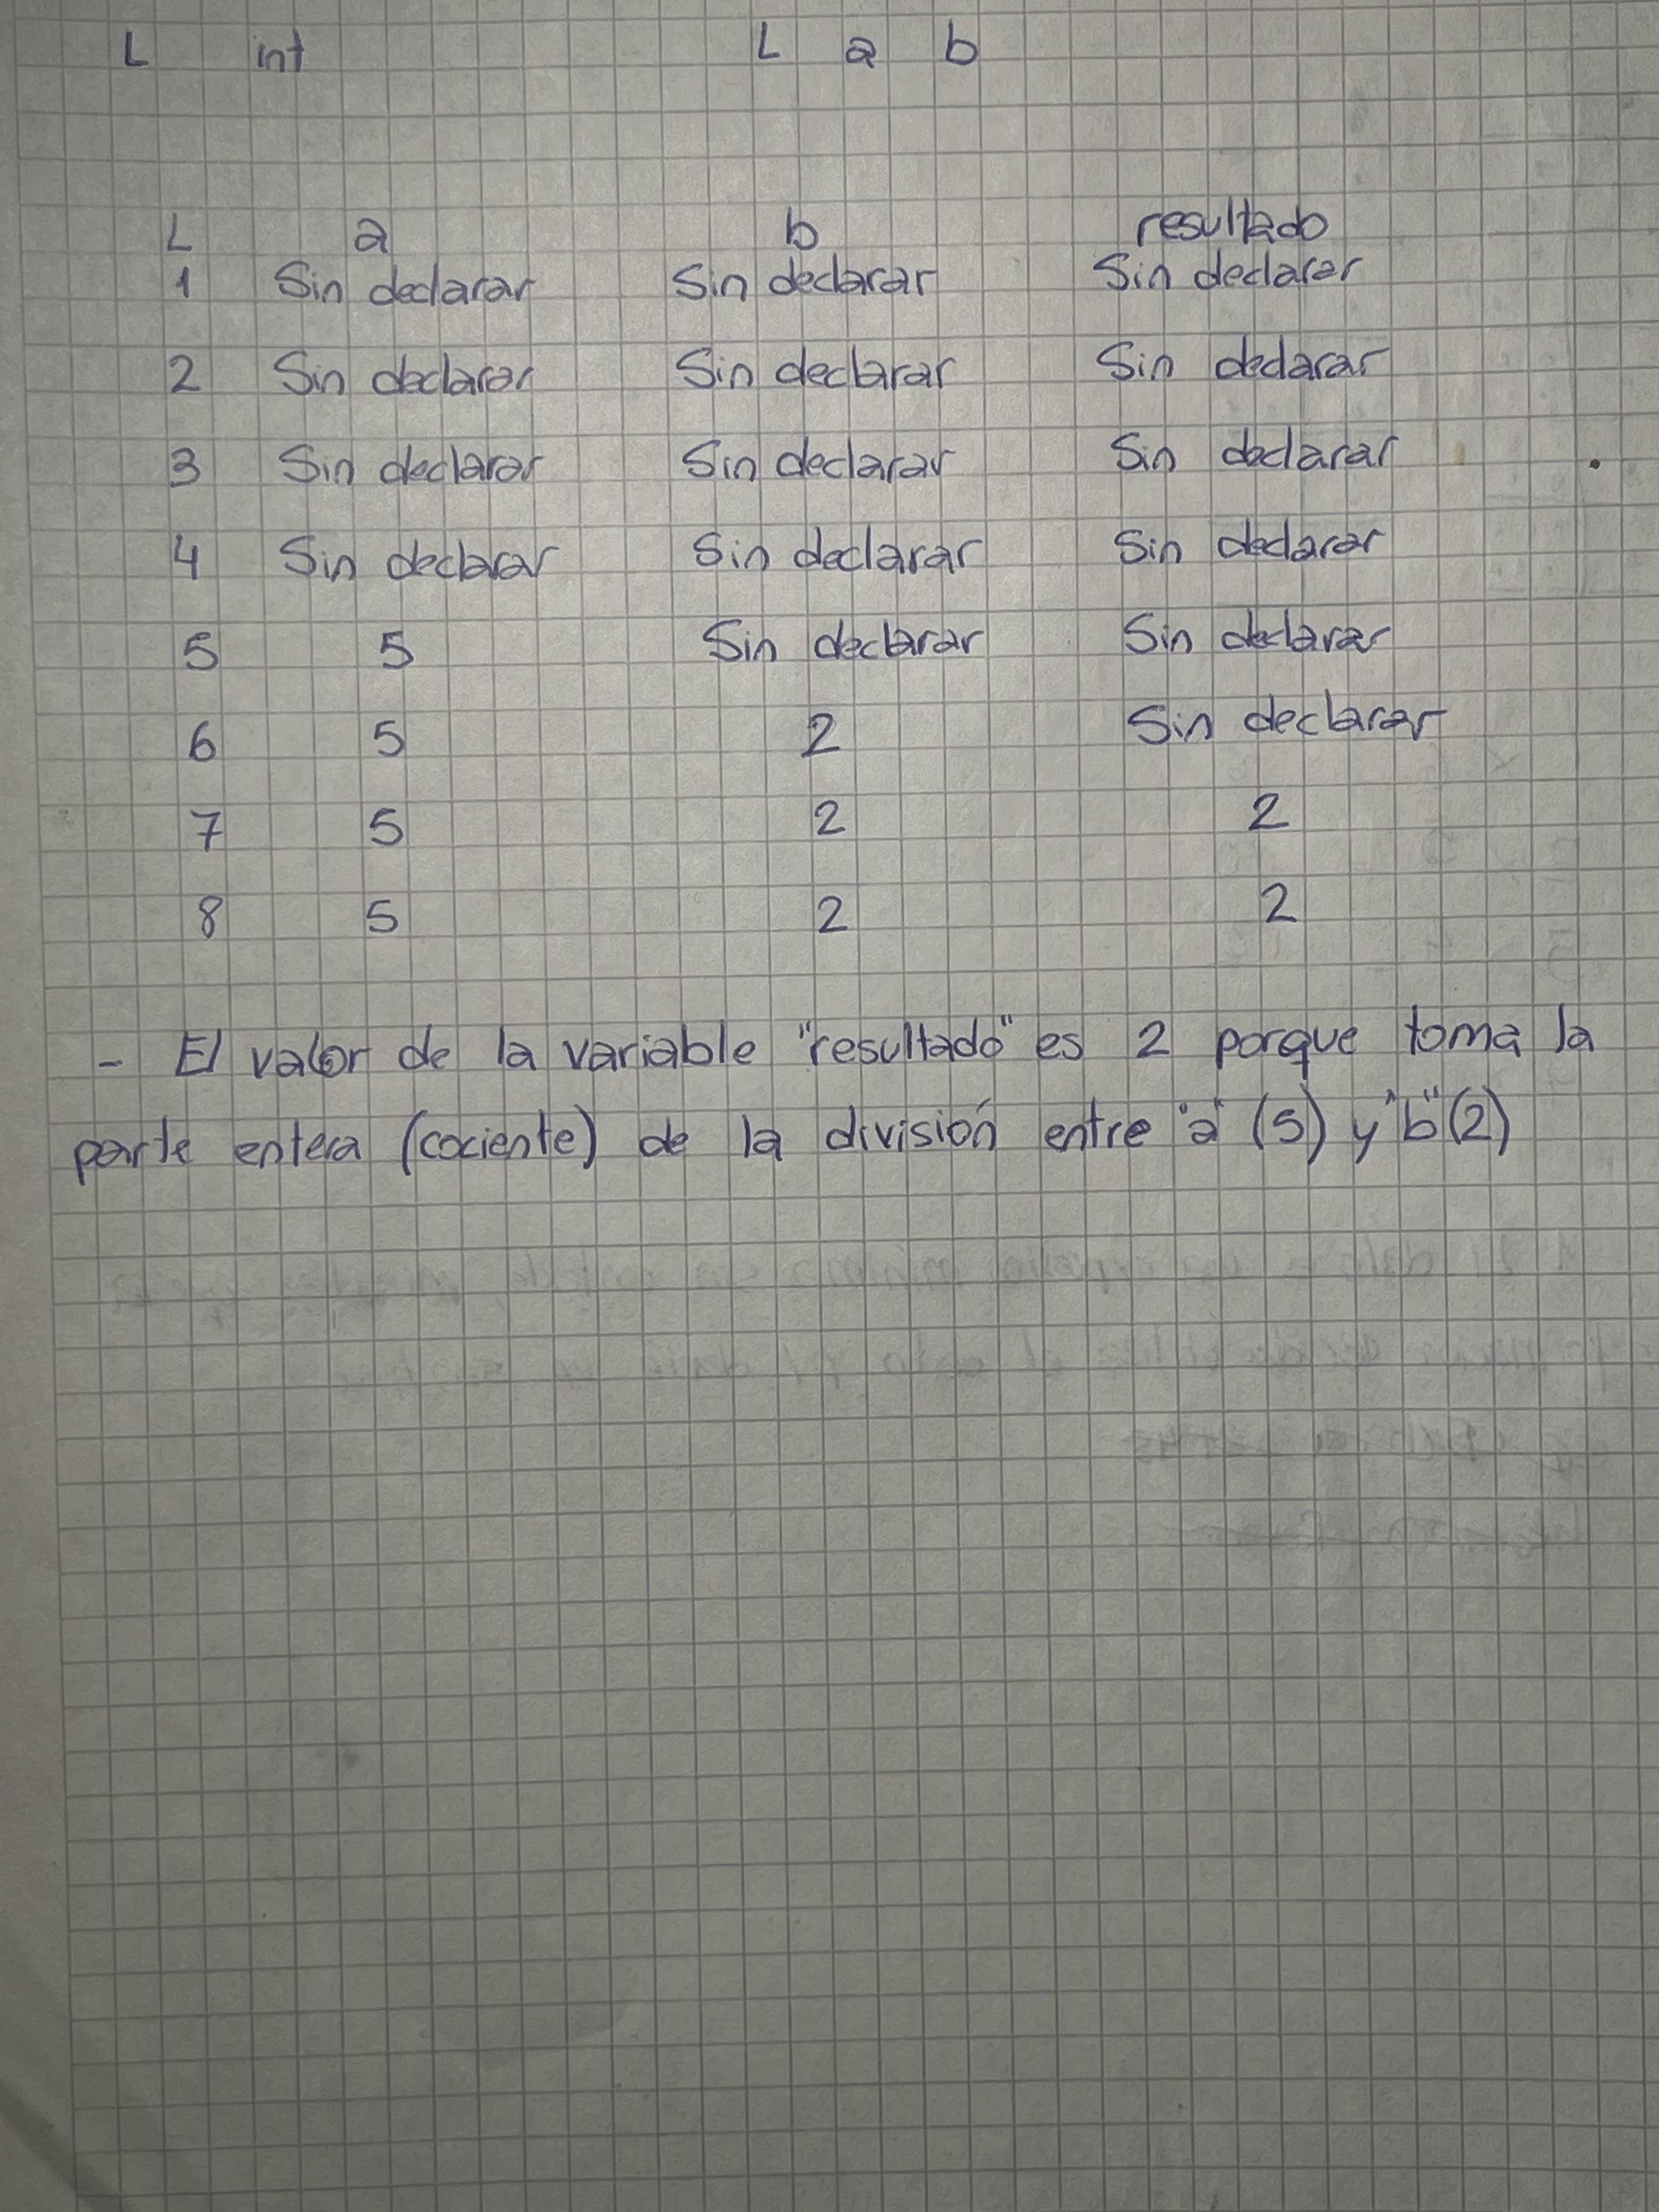 L int L a b
L a b resultado
1 Sin declarar Sin declarar Sin declarar
2 Sin declarar Sin declarar Sin declarar
3 Sin declarar Sin declarar Sin declarar
4 Sin declarar Sin declarar Sin declarar
5 5 Sin declarar Sin declarar
6 5 2 Sin declarar
7 5 2 2
8 5 2 2
- El valor de la variable "resultado" es 2 porque toma la
parte entera (cociente) de la división entre "a" (5) y "b" (2)